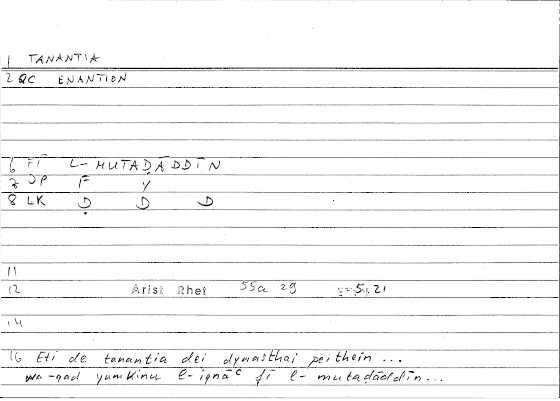 1 TANANTIA
2 QC ENANTION
6 FĪ L-MUTAḌĀDDĪN
7 OP F Y
8 LK Ḍ D D
11
12 Arist Rhet 55a 29 5, 21
14
16 Eti de tanantia dei dynasthai peithein ...
wa-qad yumkinu l-iqnāᶜ fī l-mutaḍāddīn...